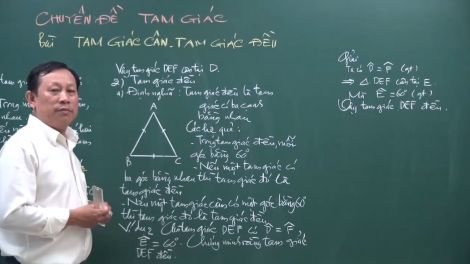 CHUYÊN ĐỀ TAM GIÁC
Bài TAM GIÁC CÂN. TAM GIÁC ĐỀU
Vậy tam giác DEF cân tại D.
2) Tam giác đều
a) Định nghĩa: Tam giác đều là tam
giác có ba cạnh
bằng nhau
Các hệ quả:
- Trong tam giác đều, mỗi
góc bằng 60°
- Nếu một tam giác có
A
B
C
ba góc bằng nhau thì tam giác đó là
tam giác đều
- Nếu một tam giác cân có một góc bằng 60°
thì tam giác đó là tam giác đều
Ví dụ 2: Cho tam giác DEF có D̂ = F̂
Ê = 60°. Chứng minh rằng tam giác
DEF đều.
Giải
Ta có D̂ = F̂ (gt)
⇒ Δ DEF cân tại E.
Mà Ê = 60° (gt)
Vậy tam giác DEF đều.